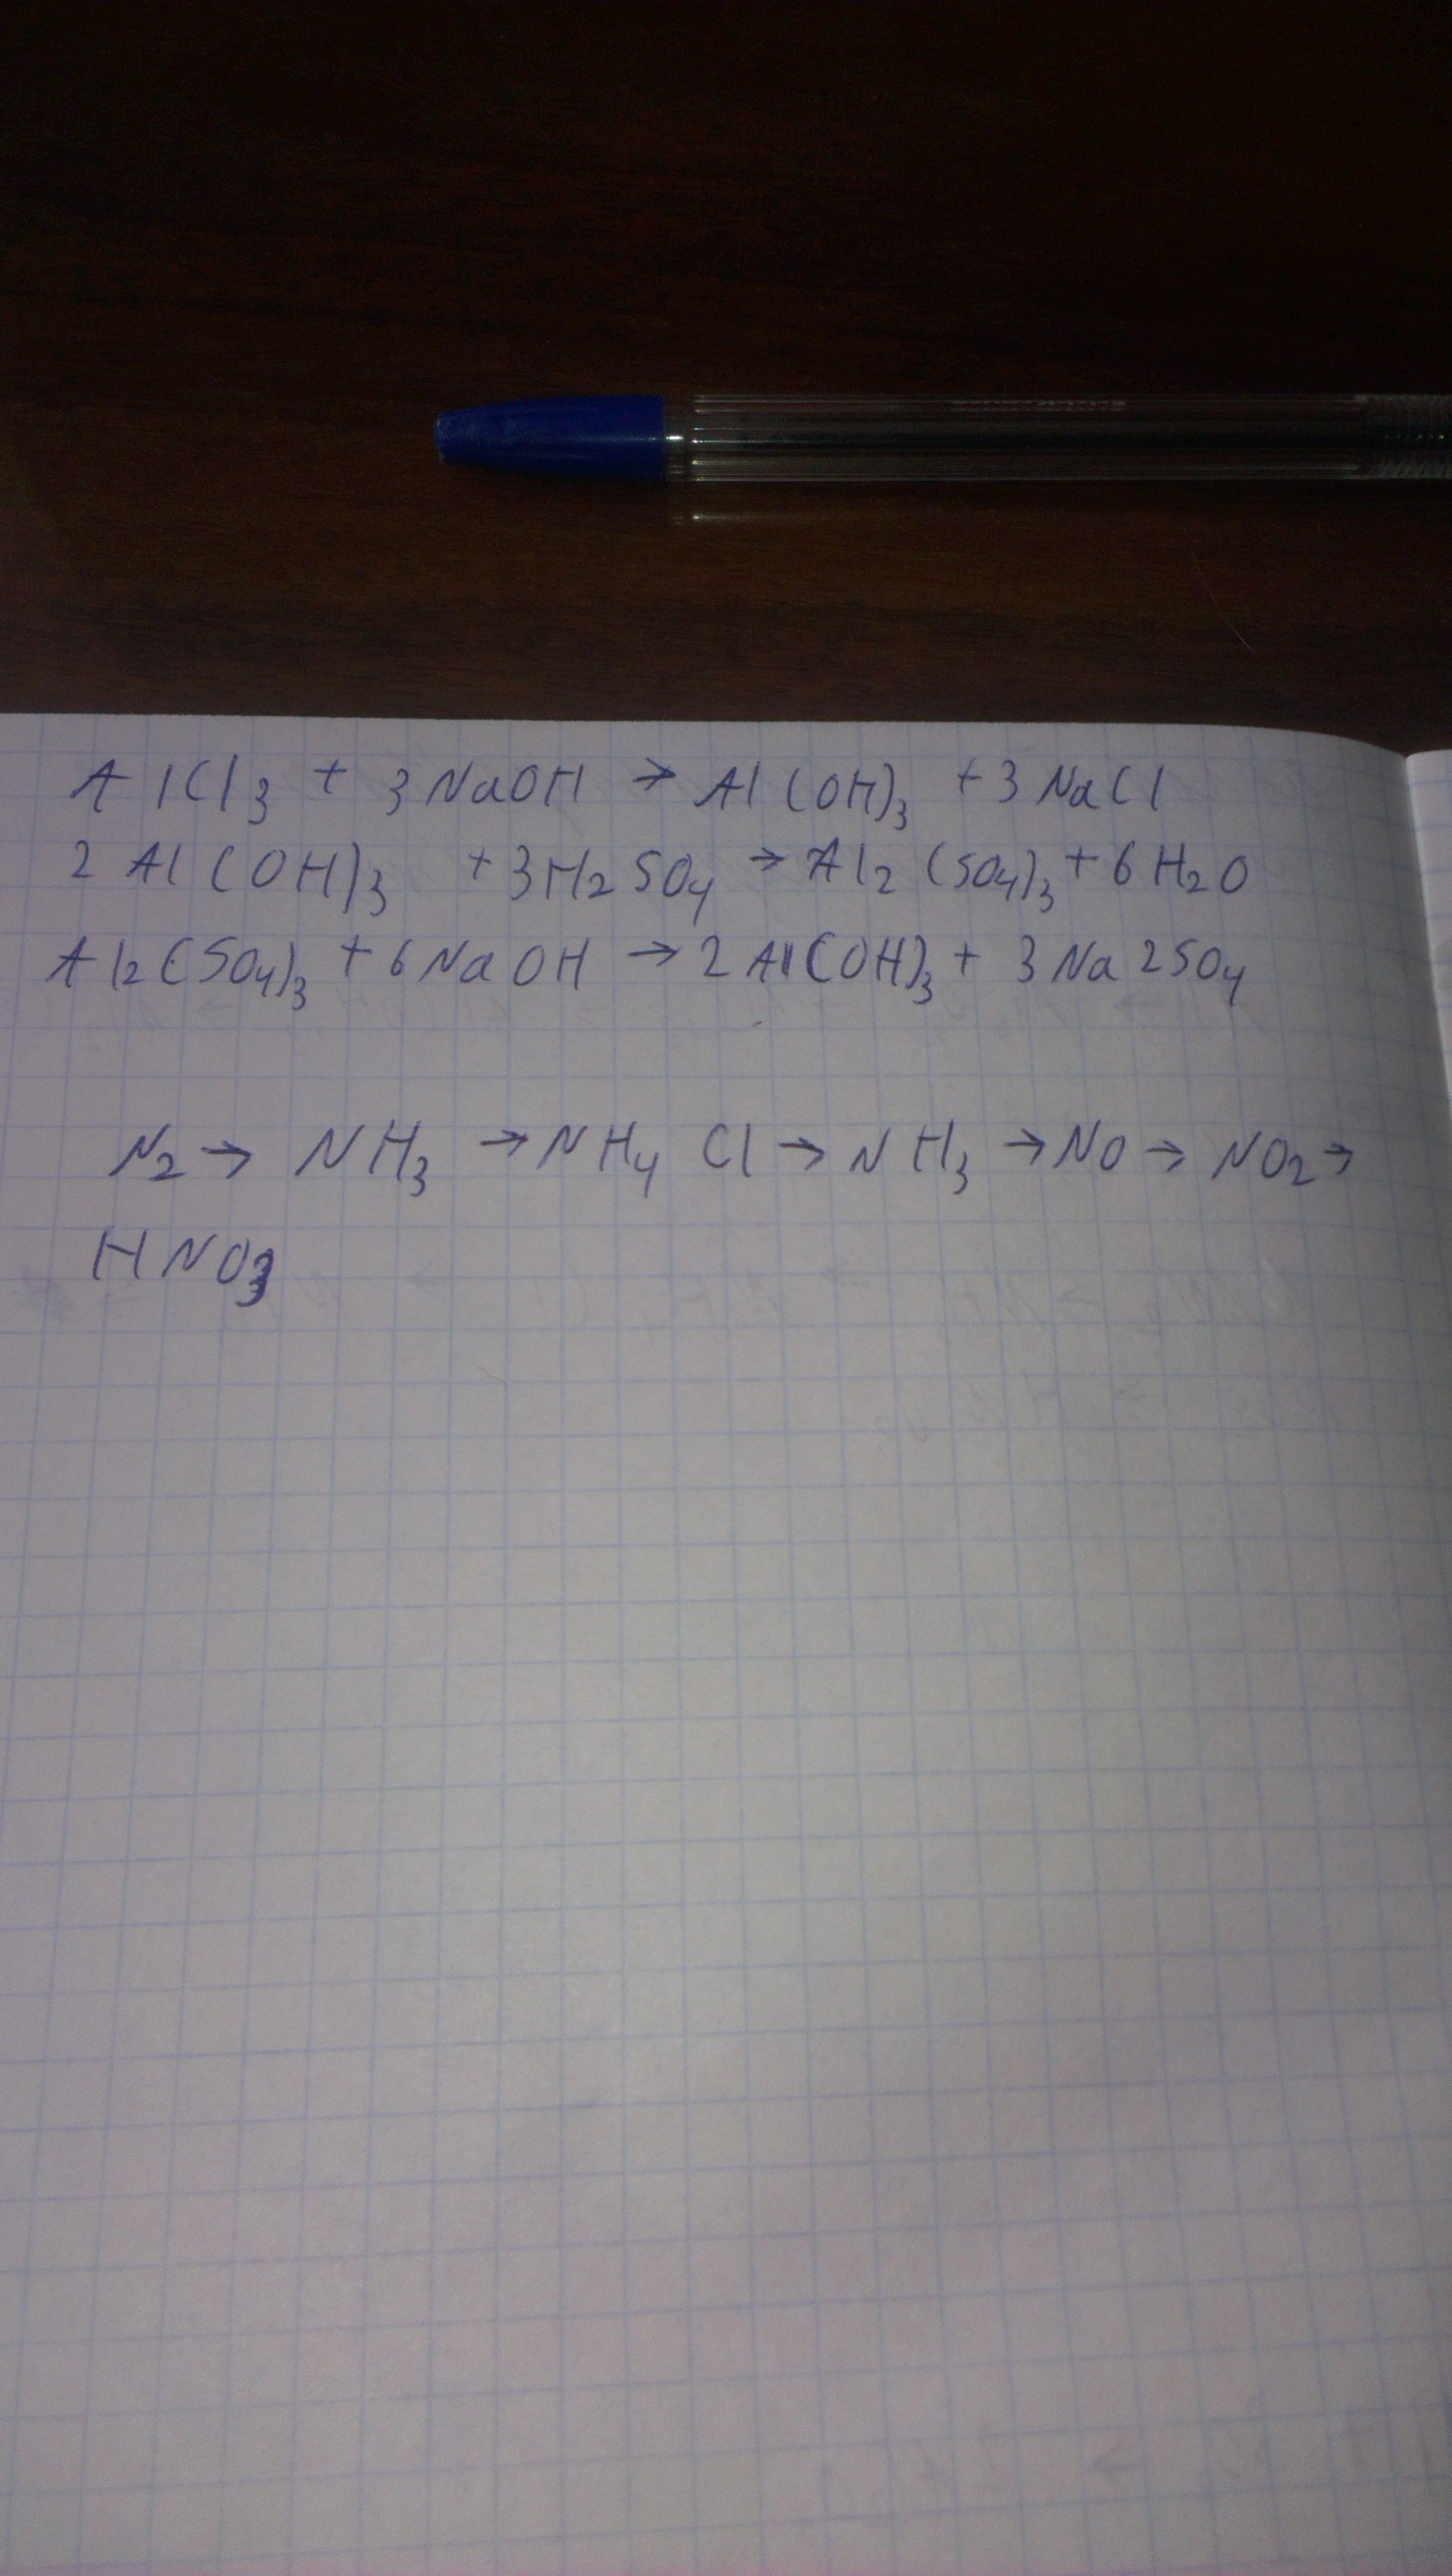 AlCl3 + 3NaOH → Al(OH)3 + 3NaCl
2Al(OH)3 + 3H2SO4 → Al2(SO4)3 + 6H2O
Al2(SO4)3 + 6NaOH → 2Al(OH)3 + 3Na2SO4
N2 → NH3 → NH4Cl → NH3 → NO → NO2 →
HNO3